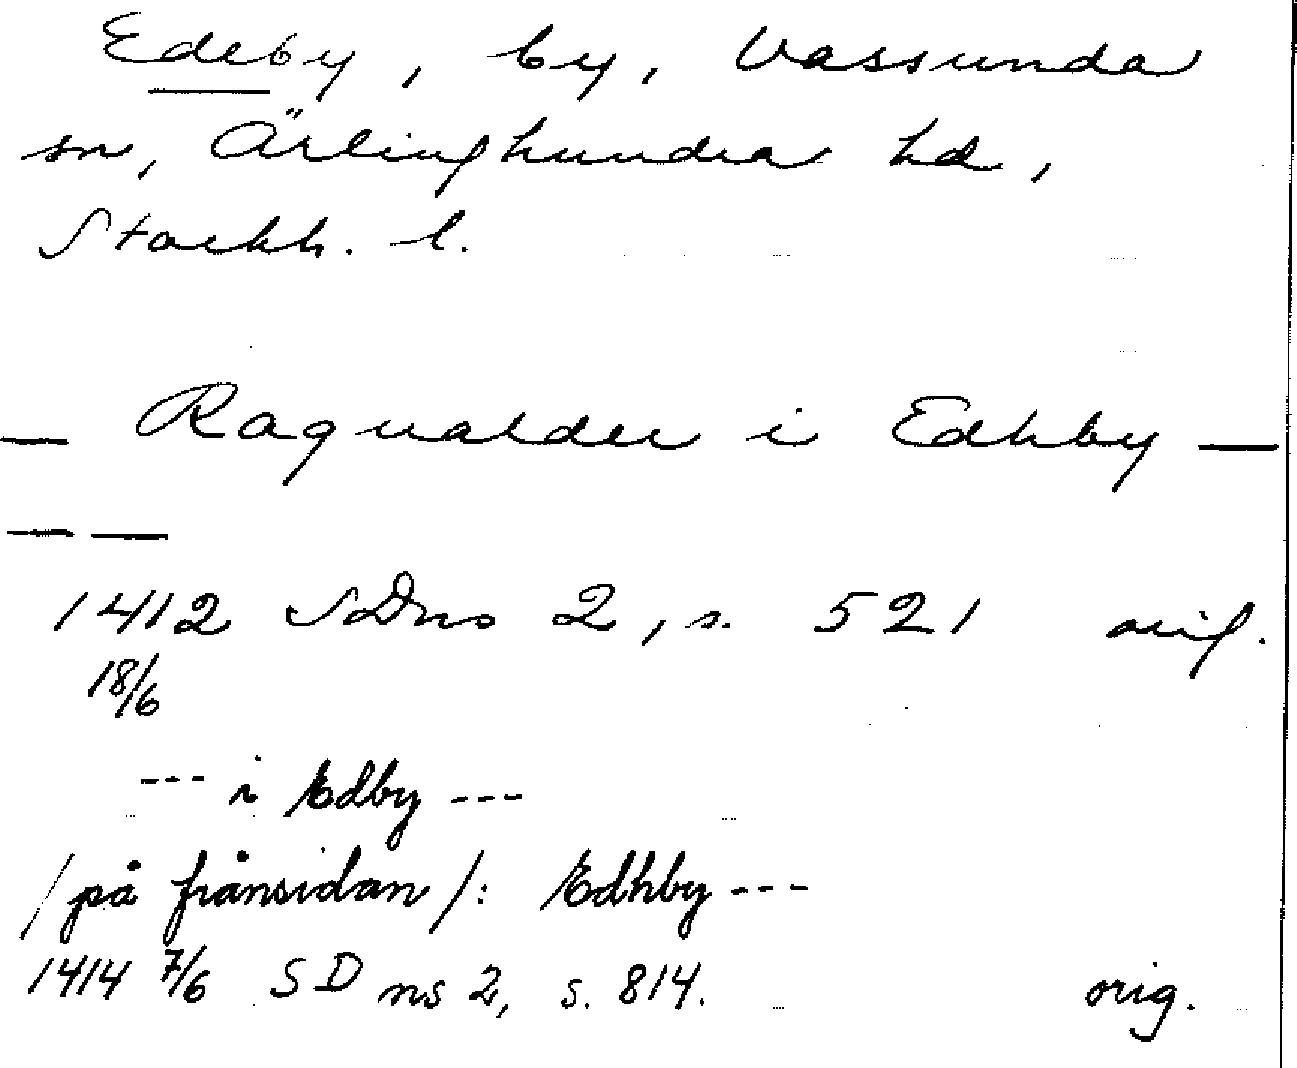 Edeby, by, Vassunda
sn, Ärlinghundra hd,
Stockh. l.
— Ragualder i Edhby —
— —
1412 SDns 2, s. 521 orig.
18/6
--- i Edby ---
/på frånsidan/: Edhby ---
1414 7/6 SD ns 2, s. 814. orig.